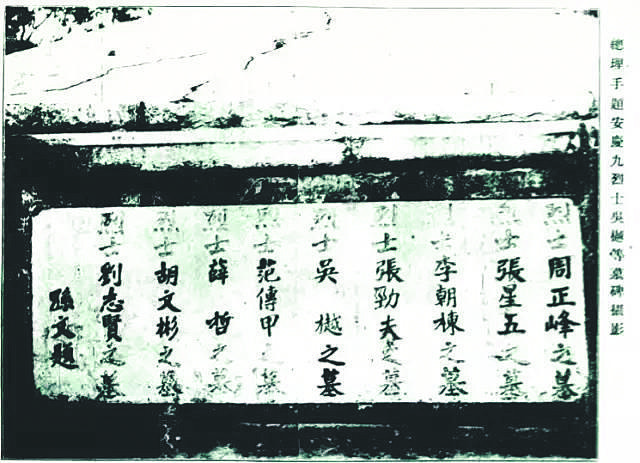 總理手題安慶九烈士吳樾等墓碑攝影
烈士周正峰之墓
烈士張星五之墓
烈士李朝棟之墓
烈士張勁夫之墓
烈士吳樾之墓
烈士范傳甲之墓
烈士薛哲之墓
烈士胡文彬之墓
烈士劉志賢之墓
孫文題